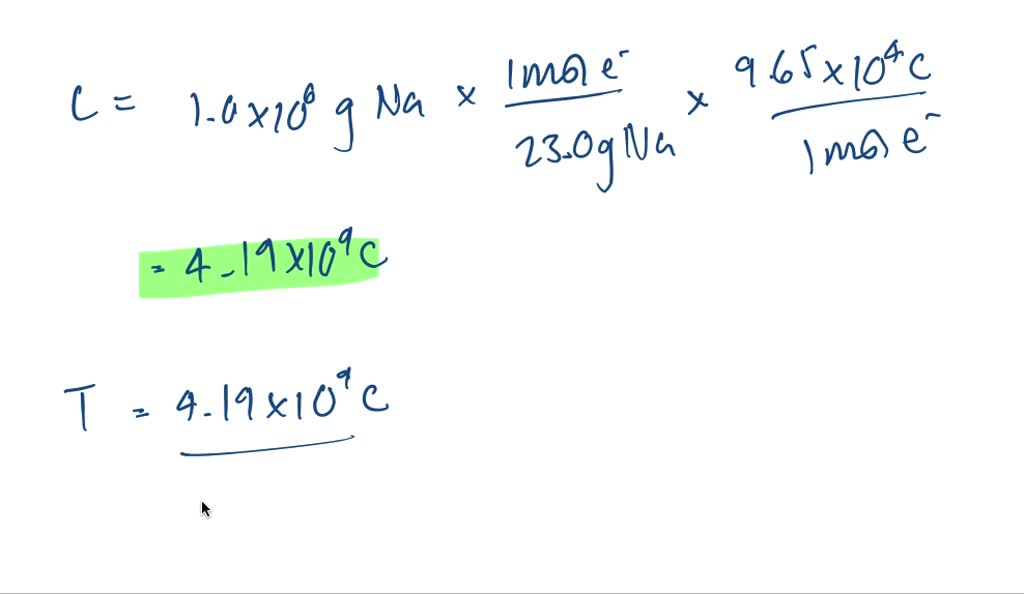 C = 1.0 x 10⁶ g Na x 1 mol e⁻ / 23.0 g Na x 9.65 x 10⁴ C / 1 mol e⁻
= 4.19 x 10⁹ C
T = 4.19 x 10⁹ C